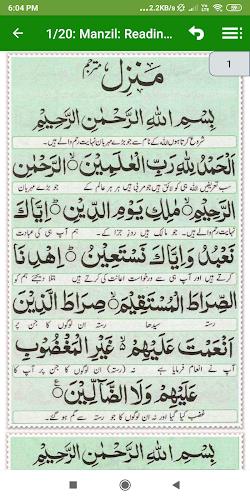 6:04 PM
2.2KB/s
1/20: Manzil: Readin...
1
مَنزِل مترجم
بِسْمِ اللهِ الرَّحْمٰنِ الرَّحِيْمِ
شروع کرتا ہوں اللہ کے نام سے جو بڑے مہربان نہایت رحم والے ہیں۔
اَلْحَمْدُ لِلّٰهِ رَبِّ الْعٰلَمِيْنَ ۙ الرَّحْمٰنِ
سب تعریفیں اللہ ہی کو لائق ہیں جو مربی ہیں ہر ہر عالم کے جو بڑے مہربان
الرَّحِيْمِ ۙ مٰلِكِ يَوْمِ الدِّيْنِ ؕ اِيَّاكَ
نہایت رحم والے ہیں۔ جو مالک ہیں روز جزا کے۔ ہم آپ ہی کی عبادت
نَعْبُدُ وَاِيَّاكَ نَسْتَعِيْنُ ؕ اِهْدِنَا
کرتے ہیں اور آپ ہی سے درخواست اعانت کی کرتے ہیں بتلا دیجئے ہم کو
الصِّرَاطَ الْمُسْتَقِيْمَ ۙ صِرَاطَ الَّذِيْنَ
رستہ سیدھا رستہ ان لوگوں کا جن پر
اَنْعَمْتَ عَلَيْهِمْ ۙ غَيْرِ الْمَغْضُوْبِ
آپ نے انعام فرمایا ہے نہ (رستہ) ان لوگوں کا جن پر آپ کا
عَلَيْهِمْ وَلَا الضَّآلِّيْنَ
غضب کیا گیا اور نہ ان لوگوں کا جو رستہ سے گم ہو گئے۔
بِسْمِ اللهِ الرَّحْمٰنِ الرَّحِيْمِ